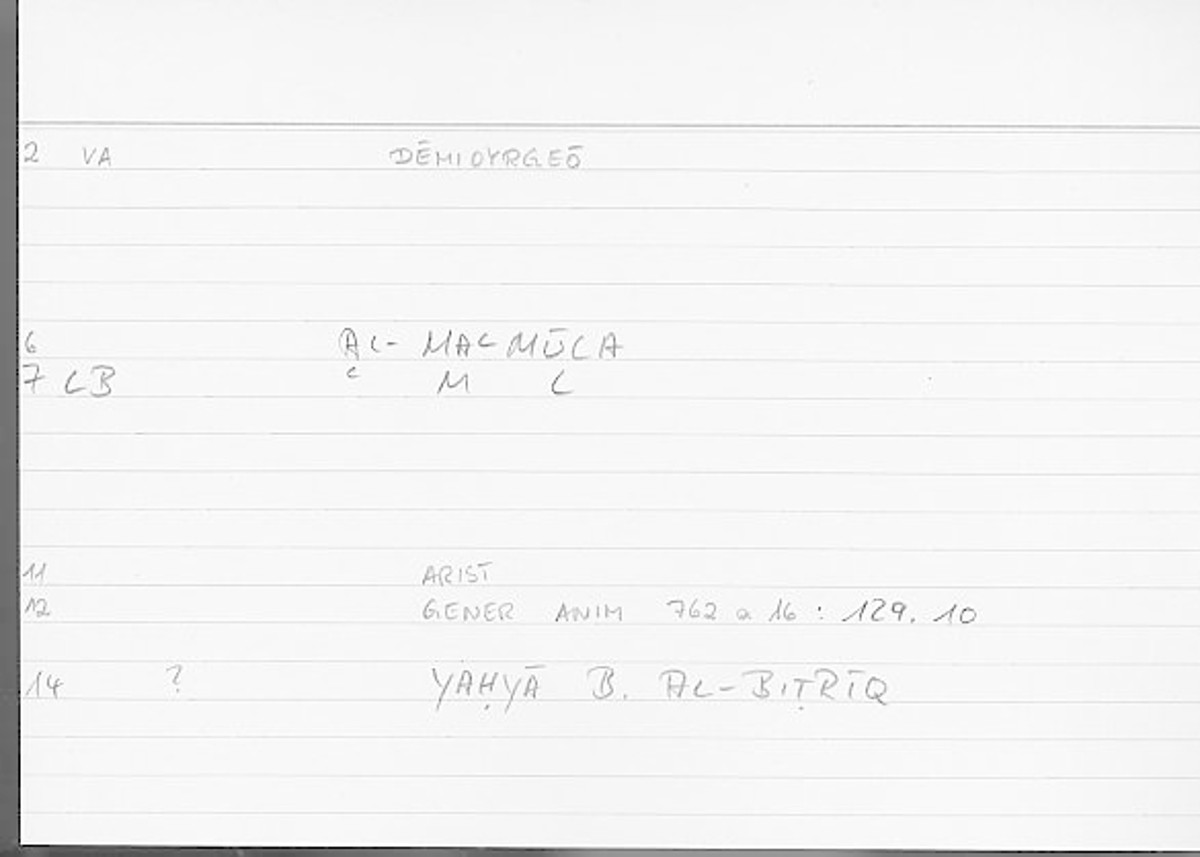 2 VA DĒMIOYRGEŌ
6 AL- MAC MŪLA
7 LB C M L
11 ARIST
12 GENER ANIM 762 a 16 : 129. 10
14 ? YAḤYĀ B. AL-BIṬRĪQ